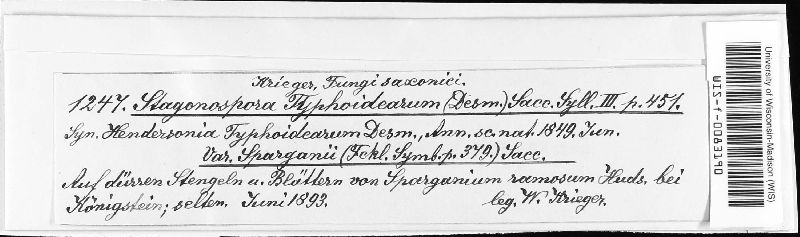 Krieger, Fungi saxonici.
1247. Stagonospora Typhoidearum (Desm.) Sacc. Syll. III. p. 451.
Syn. Hendersonia Typhoidearum Desm., Ann. sc. nat. 1849. Jun.
Var. Sparganii (Fckl. Symb. p. 379.) Sacc.
Auf dürren Stengeln u. Blättern von Sparganium ramosum Huds. bei
Königstein; selten. Juni 1893. leg. W. Krieger.
University of Wisconsin-Madison (WIS)
WIS-f-0083190